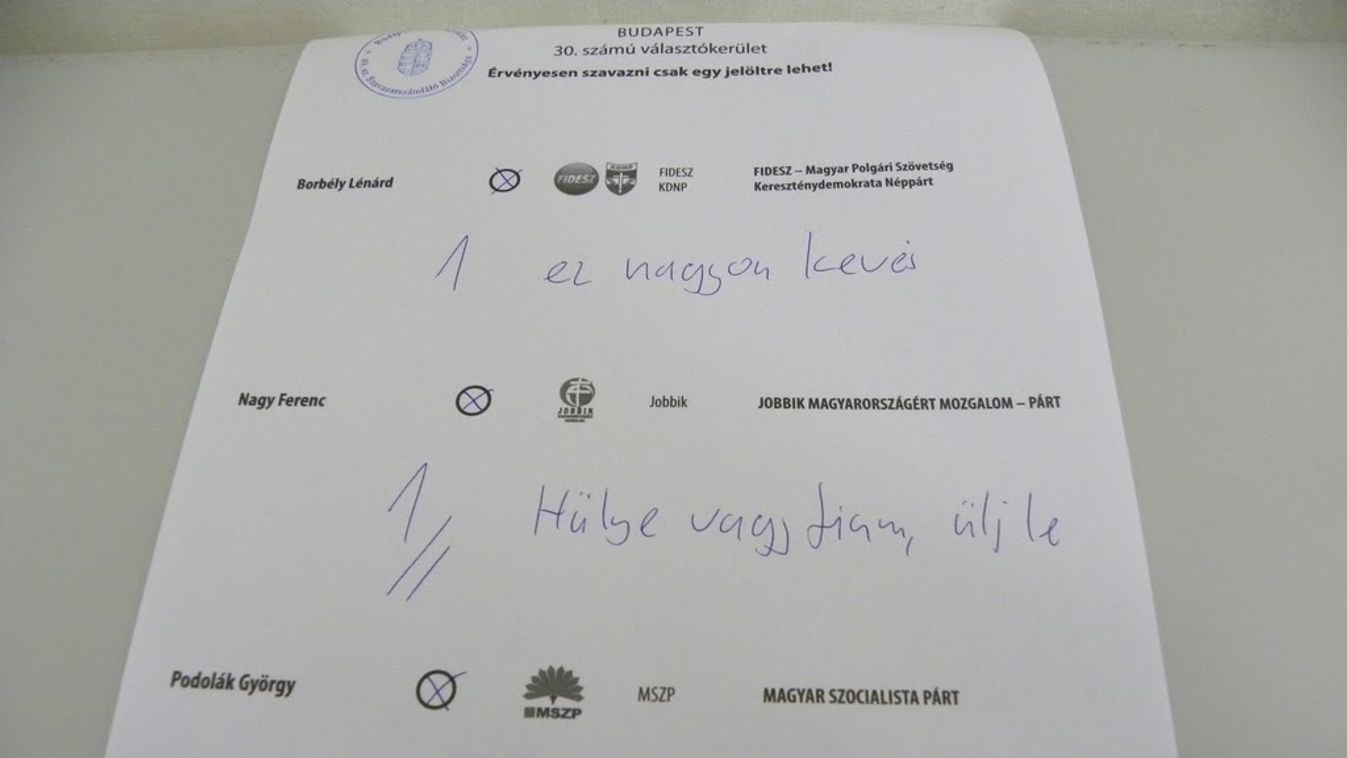 BUDAPEST
30. számú választókerület
Érvényesen szavazni csak egy jelöltre lehet!
Szavazatszámláló Bizottság
Borbély Lénárd FIDESZ KDNP FIDESZ FIDESZ – Magyar Polgári Szövetség
KDNP Kereszténydemokrata Néppárt
1 ez nagyon kevés
Nagy Ferenc JOBBIK Jobbik JOBBIK MAGYARORSZÁGÉRT MOZGALOM – PÁRT
1 Hülye vagy fiam, ülj le
Podolák György MSZP MSZP MAGYAR SZOCIALISTA PÁRT